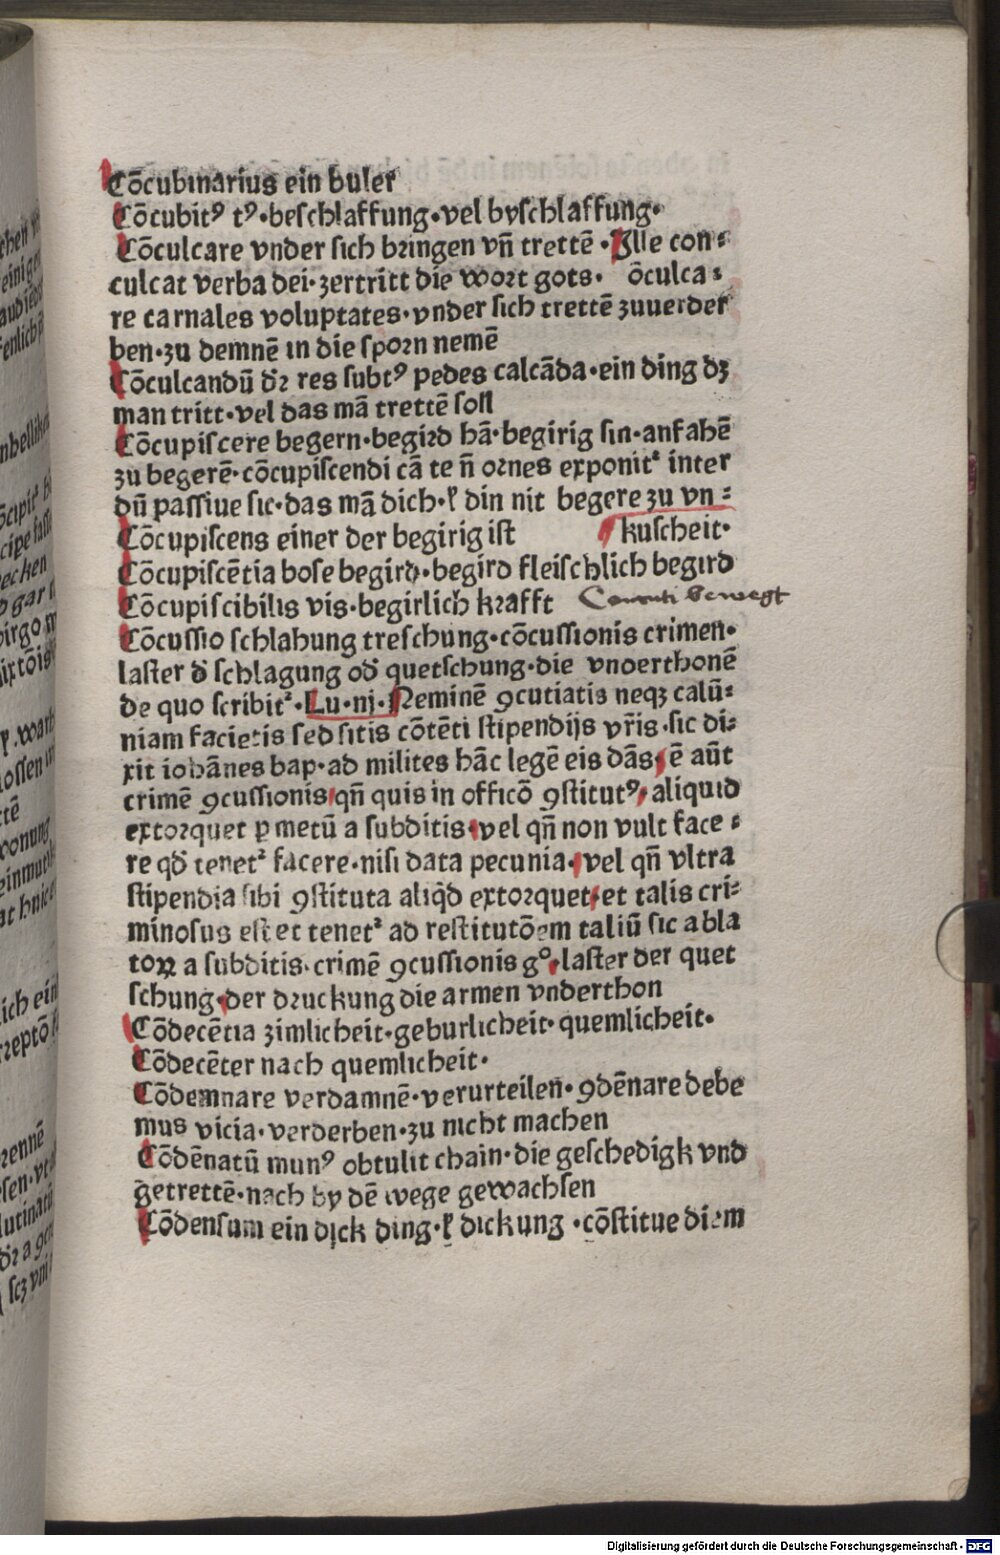 Cōcubinarius ein buler
Cōcubitꝰ tꝰ·beschlaffung·vel byschlaffung·
Cōculcare vnder sich bringen vñ trettē ·Ille con⸗
culcat verba dei·zertritt die wort gots· ōculca⸗
re carnales voluptates·vnder sich trettē zuuerder
ben·zu demnē in die sporn nemē
Cōculcandū dꝛ res subtꝰ pedes calcāda·ein ding dz
man tritt·vel das mā trettē soll
Cōcupiscere begern·begird hā·begirig sin·anfahē
zu begerē·cōcupiscendi cā te ñ ornes exponitᷣ inter
dū passiue sic·das mā dich·ł din nit begere zu vn⸗
Cōcupiscens einer der begirig ist kuscheit·
Cōcupiscētia bose begird·begird fleischlich begird
Cōcupiscibilis vis·begirlich krafft bewegt
Cōcussio schlahung treschung·cōcussionis crimen·
laster d̄ schlagung od̄ quetschung·die vnderthonē
de quo scribitᷣ·Lu·iij·Neminē ꝯcutiatis neqꝫ calū⸗
niam facietis sed sitis cōtēti stipendijs vr̄is·sic di⸗
xit iohānes bap·ad milites hāc legē eis dās·ē aūt
crimē ꝯcussionis qñ quis in officō ꝯstitutꝰ aliquid
extorquet ꝑ metū a subditis·vel qñ non vult face⸗
re qd̄ tenetᷣ facere·nisi data pecunia·vel qñ vltra
stipendia sibi ꝯstituta aliq̄d extorquet·et talis cri⸗
minosus est et tenetᷣ ad restitutōem taliū sic abla
toꝝ a subditis·crimē ꝯcussionis gº·laster der quet
schung·der druckung die armen vnderthon
Cōdecētia zimlicheit·geburlicheit·quemlicheit·
Cōdecēter nach quemlicheit·
Cōdemnare verdamnē·verurteilen·ꝯdēnare debe
mus vicia·verderben·zu nicht machen
Cōdēnatū munꝰ obtulit chain·die geschedigk vnd
getrettē·nach by dē wege gewachsen
Cōdensum ein dick ding·ł dickung ·cōstitue diem
Digitalisierung gefördert durch die Deutsche Forschungsgemeinschaft · DFG